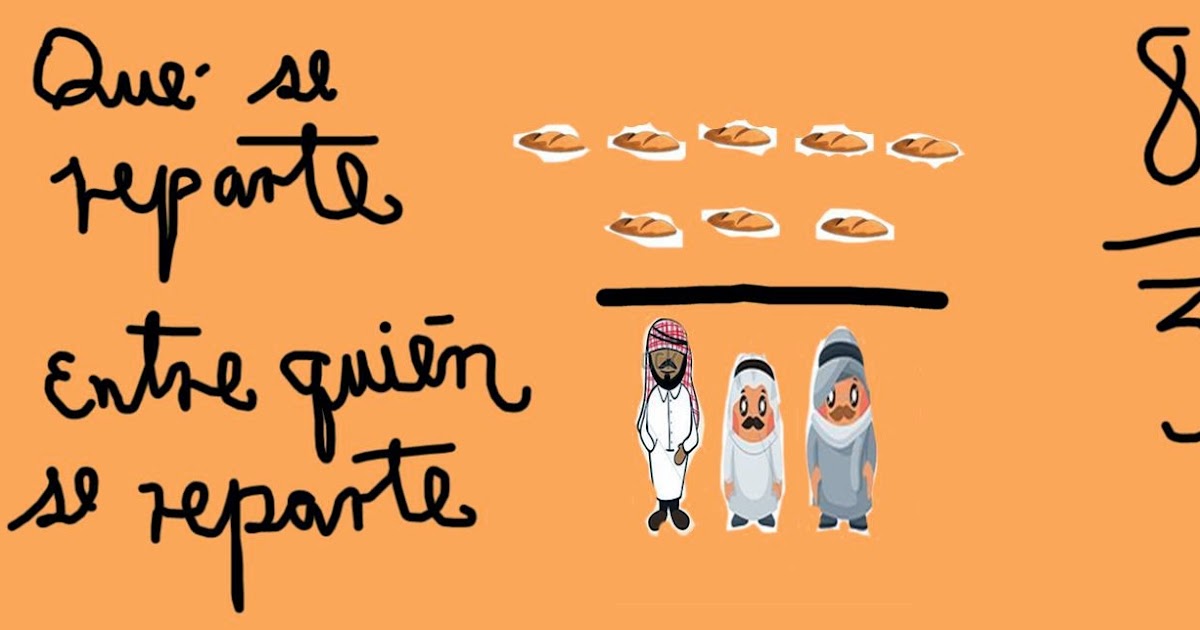 Qué se
reparte
Entre quién
se reparte
8
3